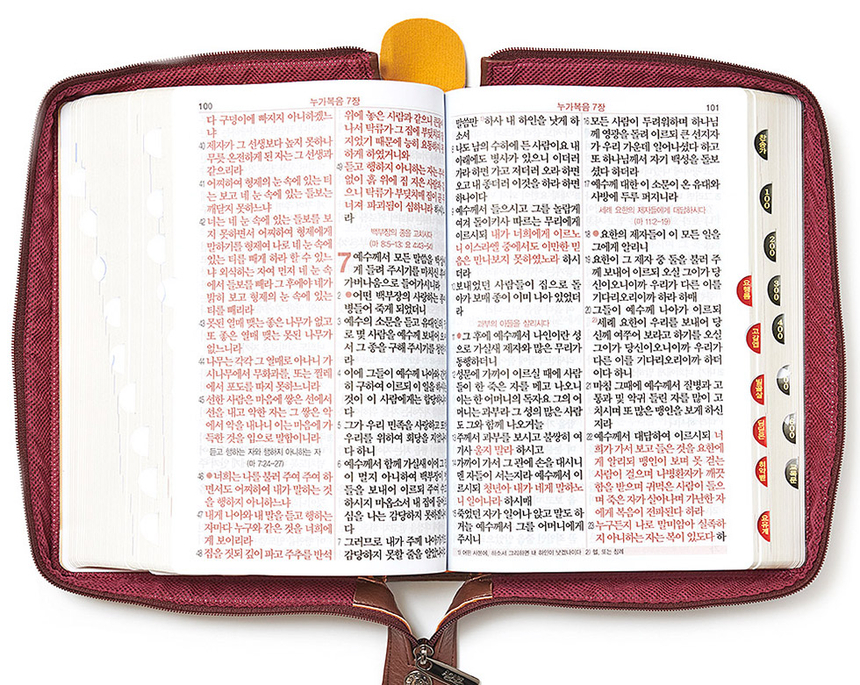 100
누가복음 7장
다 구덩이에 빠지지 아니하겠느
냐
40 제자가 그 선생보다 높지 못하나
무릇 온전하게 된 자는 그 선생과
같으리라
41 어찌하여 형제의 눈 속에 있는 티
는 보고 네 눈 속에 있는 들보는
깨닫지 못하느냐
42 너는 네 눈 속에 있는 들보를 보
지 못하면서 어찌하여 형제에게
말하기를 형제여 나로 네 눈 속에
있는 티를 빼게 하라 할 수 있느
냐 외식하는 자여 먼저 네 눈 속
에서 들보를 빼라 그 후에야 네가
밝히 보고 형제의 눈 속에 있는
티를 빼리라
43 못된 열매 맺는 좋은 나무가 없고
또 좋은 열매 맺는 못된 나무가
없느니라
44 나무는 각각 그 열매로 아나니 가
시나무에서 무화과를, 또는 찔레
에서 포도를 따지 못하느니라
45 선한 사람은 마음에 쌓은 선에서
선을 내고 악한 자는 그 쌓은 악
에서 악을 내나니 이는 마음에 가
득한 것을 입으로 말함이니라
듣고 행하는 자와 행하지 아니하는 자
(마 7:24-27)
46 너희는 나를 불러 주여 주여 하
면서도 어찌하여 내가 말하는 것
을 행하지 아니하느냐
47 내게 나아와 내 말을 듣고 행하는
자마다 누구와 같은 것을 너희에
게 보이리라
48 집을 짓되 깊이 파고 주추를 반석
위에 놓은 사람과 같으니
나서 탁류가 그 집에 부딪치되
지었기 때문에 능히 요동하게
하게 하였거니와
49 듣고 행하지 아니하는 자는
없이 흙 위에 집 지은 사람과
으니 탁류가 부딪치매 집이
너져 파괴됨이 심하니라 하시니
라
백부장의 종을 고치시다
(마 8:5-13; 요 4:43-54)
7 예수께서 모든 말씀을 백성에
게 들려 주시기를 마치신 후에
가버나움으로 들어가시니라
2 어떤 백부장의 사랑하는 종이
병들어 죽게 되었더니
3 예수의 소문을 듣고 유대인의
로 몇 사람을 예수께 보내어
서 그 종을 구해 주시기를 청한
라
4 이에 그들이 예수께 나아와 간절
히 구하여 이르되 이 일을 하시는
것이 이 사람에게는 합당하니이
다
5 그가 우리 민족을 사랑하고 또한
우리를 위하여 회당을 지었나이
다 하니
6 예수께서 함께 가실새 이에 그
이 멀지 아니하여 백부장이
들을 보내어 이르되 주여 수고
하시지 마옵소서 내 집에 들어오
심을 나는 감당하지 못하겠나이
다
7 그러므로 내가 주께 나아가기도
감당하지 못할 줄을 알았나이다
누가복음 7장
101
말씀만 하사 내 하인을 낫게 하
소서
나도 남의 수하에 든 사람이요 내
아래에도 병사가 있으니 이더러
가라 하면 가고 저더러 오라 하면
오고 내 종더러 이것을 하라 하면
하나이다
예수께서 들으시고 그를 놀랍게
여겨 돌이키사 따르는 무리에게
이르시되 내가 너희에게 이르노
니 이스라엘 중에서도 이만한 믿
음은 만나보지 못하였노라 하시
더라
보내었던 사람들이 집으로 돌아
가 보매 종이 이미 나아 있었더
라
과부의 아들을 살리시다
그 후에 예수께서 나인이란 성
으로 가실새 제자와 많은 무리가
동행하더니
성문에 가까이 이르실 때에 사람
들이 한 죽은 자를 메고 나오니
이는 한 어머니의 독자요 그의 어
머니는 과부라 그 성의 많은 사람
도 그와 함께 나오거늘
주께서 과부를 보시고 불쌍히 여
기사 울지 말라 하시고
가까이 가서 그 관에 손을 대시니
멘 자들이 서는지라 예수께서 이
르시되 청년아 내가 네게 말하노
니 일어나라 하시매
죽었던 자가 일어나 앉고 말도 하
거늘 예수께서 그를 어머니에게
주시니
16 모든 사람이 두려워하며 하나님
께 영광을 돌려 이르되 큰 선지자
가 우리 가운데 일어나셨다 하고
또 하나님께서 자기 백성을 돌보
셨다 하더라
17 예수께 대한 이 소문이 온 유대와
사방에 두루 퍼지니라
세례 요한의 제자들에게 대답하시다
(마 11:2-19)
18 요한의 제자들이 이 모든 일을
그에게 알리니
19 요한이 그 제자 중 둘을 불러 주
께 보내어 이르되 오실 그이가 당
신이오니이까 우리가 다른 이를
기다리오리이까 하라 하매
20 그들이 예수께 나아가 이르되
세례 요한이 우리를 보내어 당
신께 여주어 보라고 하기를 오실
그이가 당신이오니이까 우리가
다른 이를 기다리오리이까 하더
이다 하니
21 마침 그때에 예수께서 질병과 고
통과 및 악귀 들린 자를 많이 고
치시며 또 많은 맹인을 보게 하신
지라
22 예수께서 대답하여 이르시되 너
희가 가서 보고 들은 것을 요한에
게 알리되 맹인이 보며 못 걷는
사람이 걸으며 나병환자가 깨끗
함을 받으며 귀먹은 사람이 들으
며 죽은 자가 살아나며 가난한 자
에게 복음이 전파된다 하라
23 누구든지 나로 말미암아 실족하
지 아니하는 자는 복이 있도다 하
1) 어떤 사본에, 하소서 그리하면 내 하인이 낫겠나이다 2) 헬, 또는 침례
찬송가
100
200
300
400
요행롬
고갈엡
빌골살
딤딛몬
히약벧
요유계
교독문